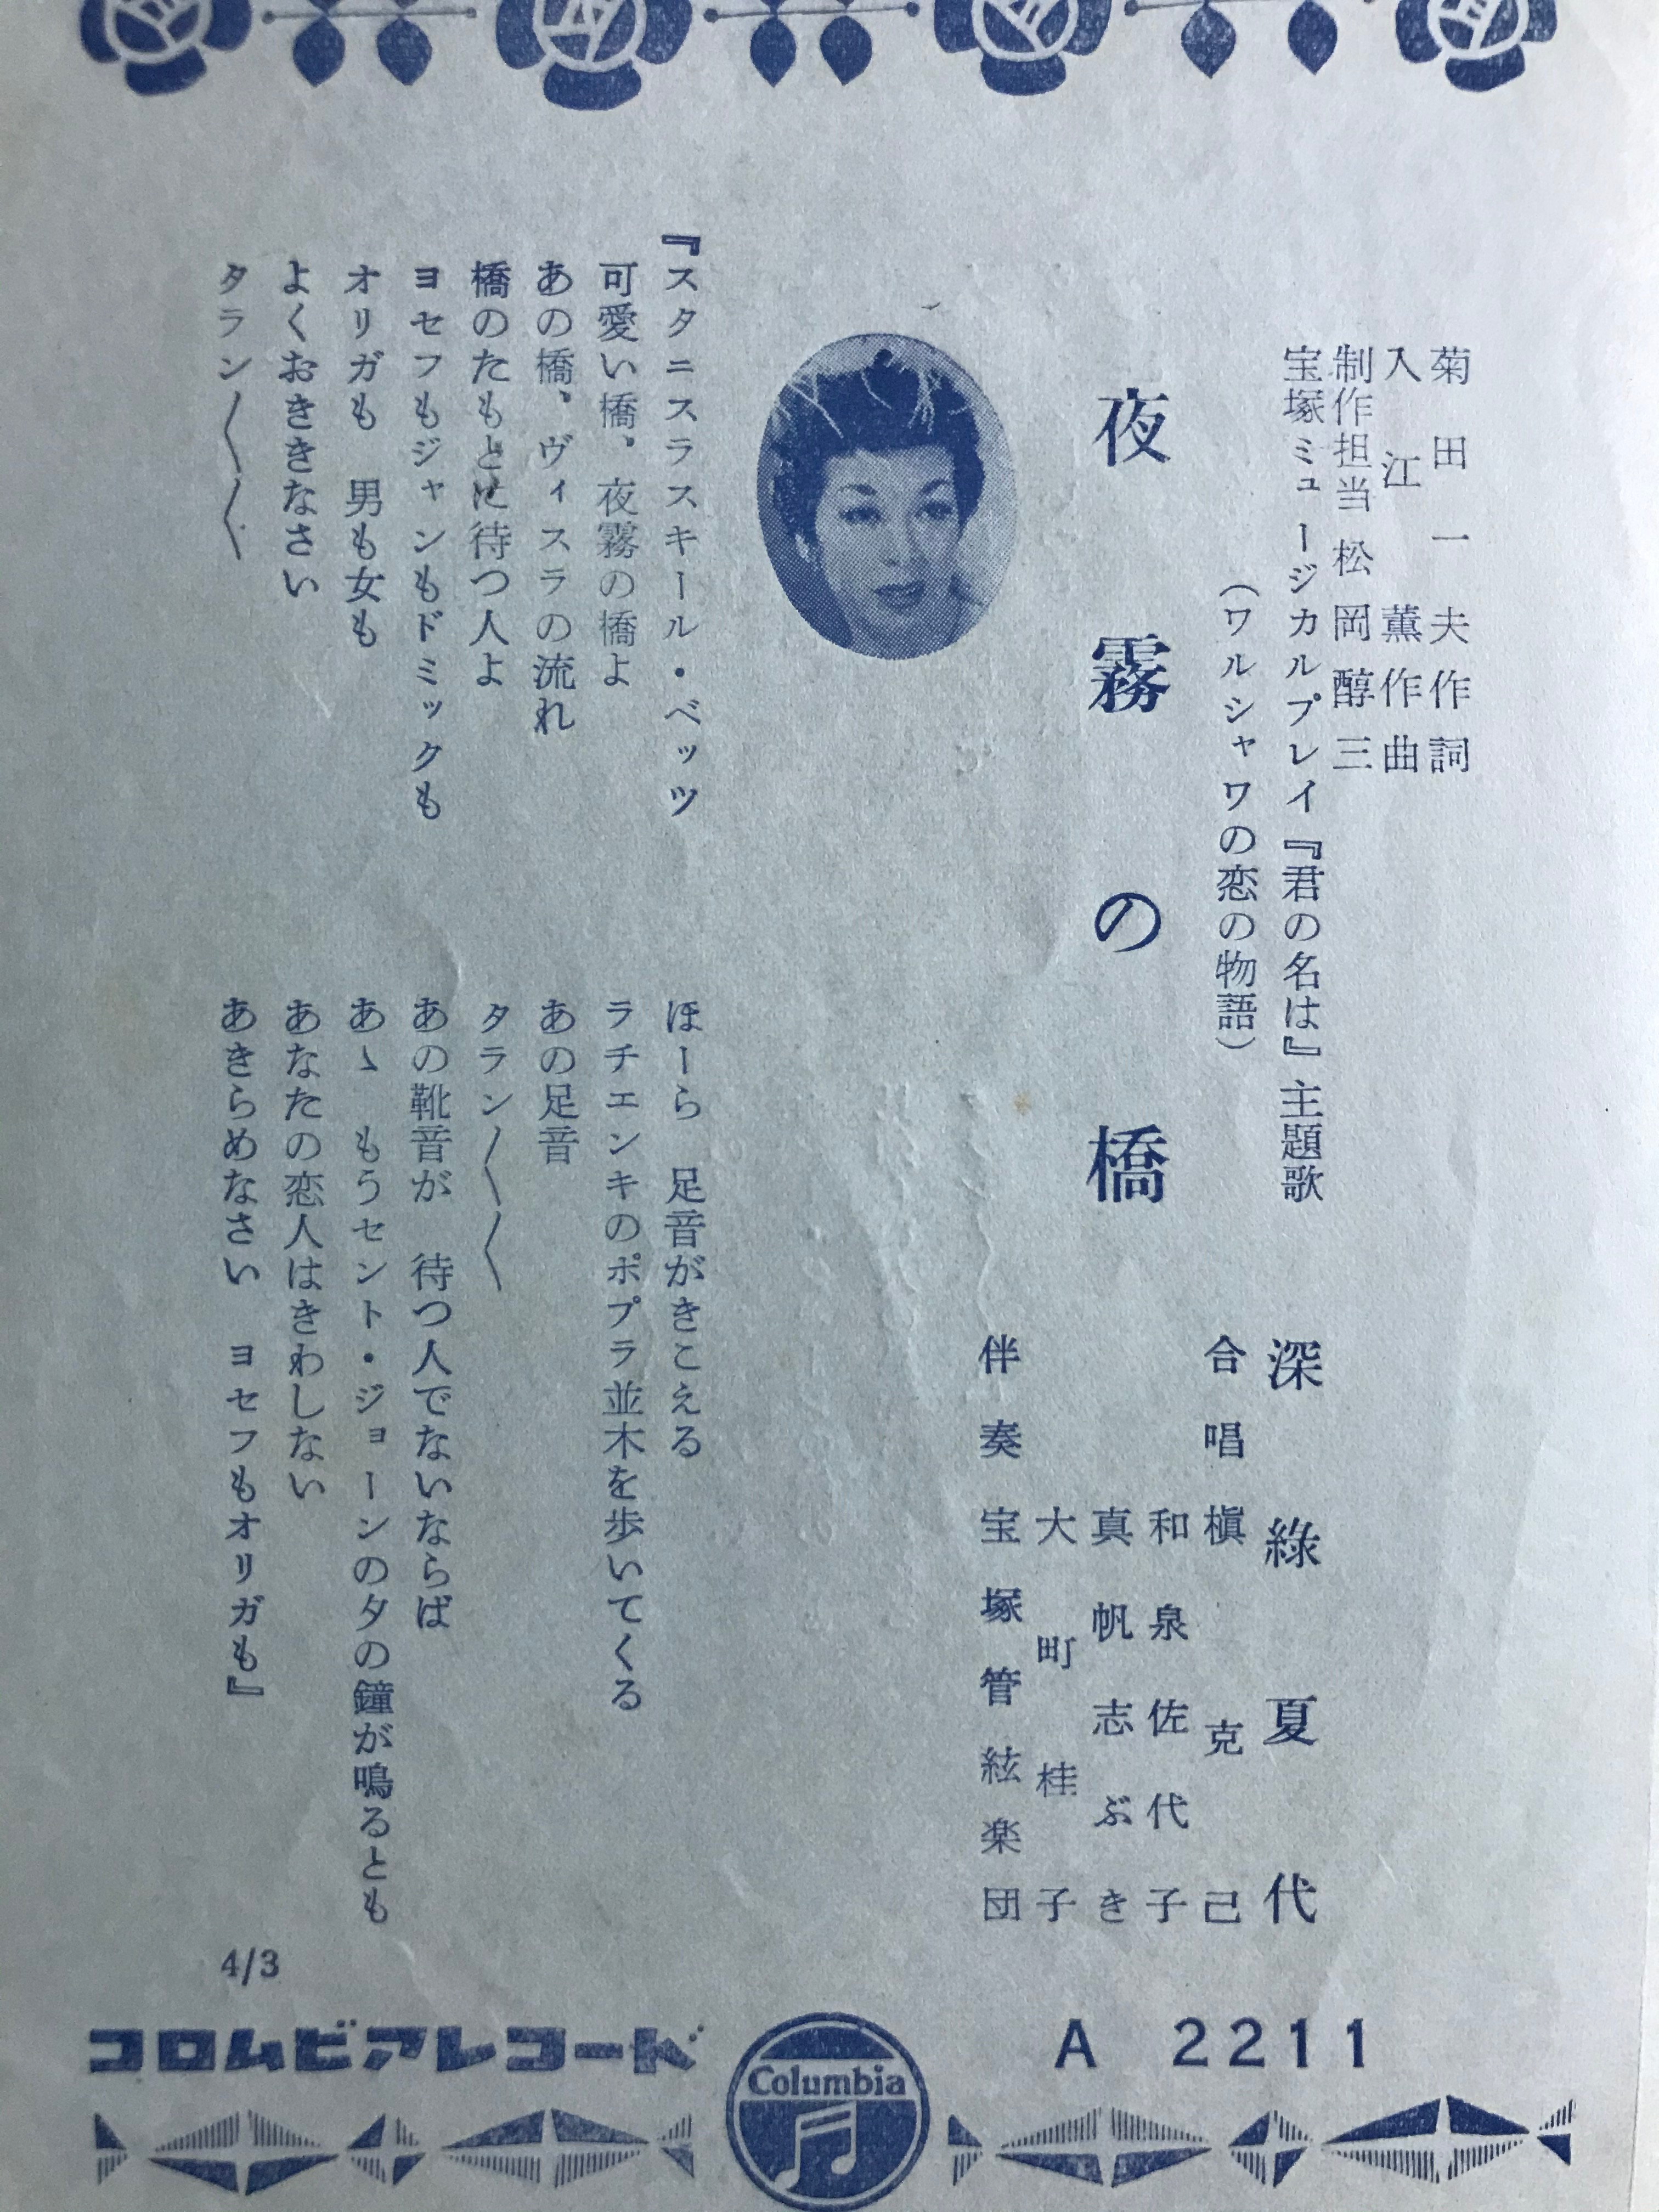 菊田一夫作詞
入江薫作曲
制作担当 松岡醇三
宝塚ミュージカルプレイ『君の名は』主題歌
(ワルシャワの恋の物語)
夜霧の橋
深緑夏代
合唱 槇克己
和泉佐代子
真帆志ぶき
大町桂子
伴奏 宝塚管絃楽団
『スタニスラスキール・ベッツ
可愛い橋、夜霧の橋よ
あの橋、ヴィスラの流れ
橋のたもとに待つ人よ
ヨセフもジャンもドミックも
オリガも 男も女も
よくおききなさい
タラン〱〱
ほーら 足音がきこえる
ラチエンキのポプラ並木を歩いてくる
あの足音
タラン〱〱
あの靴音が 待つ人でないならば
あゝ もうセント・ジョーンの夕の鐘が鳴るとも
あなたの恋人はきわしない
あきらめなさい ヨセフもオリガも』
4/3
コロムビアレコード
Columbia
A 2211